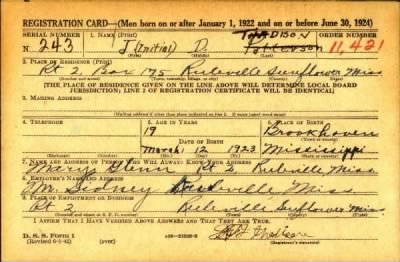 REGISTRATION CARD—(Men born on or after January 1, 1922 and on or before June 30, 1924)
SERIAL NUMBER 1. NAME (Print) ORDER NUMBER
243 J (Initial) D. Patterson 11,421
(First) (Middle) (Last)
2. PLACE OF RESIDENCE (Print)
Rt 2 Box 175 Ruleville Sunflower Miss
(Number and street) (Town, township, village, or city) (County) (State)
[THE PLACE OF RESIDENCE GIVEN ON THE LINE ABOVE WILL DETERMINE LOCAL BOARD
JURISDICTION; LINE 2 OF REGISTRATION CERTIFICATE WILL BE IDENTICAL]
3. MAILING ADDRESS
4. TELEPHONE 5. AGE IN YEARS 6. PLACE OF BIRTH
19 Brookhaven
DATE OF BIRTH
March 12 1923 Mississippi
7. NAME AND ADDRESS OF PERSON WHO WILL ALWAYS KNOW YOUR ADDRESS
Mary Glenn Rt 2 Ruleville Miss
8. EMPLOYER'S NAME AND ADDRESS
Sidney Ruleville Miss.
9. PLACE OF EMPLOYMENT OR BUSINESS
Rt 2 Ruleville Sunflower Miss
I AFFIRM THAT I HAVE VERIFIED ABOVE ANSWERS AND THAT THEY ARE TRUE.
D. S. S. Form 1
(Revised 6-1-42)
(Registrant's signature)